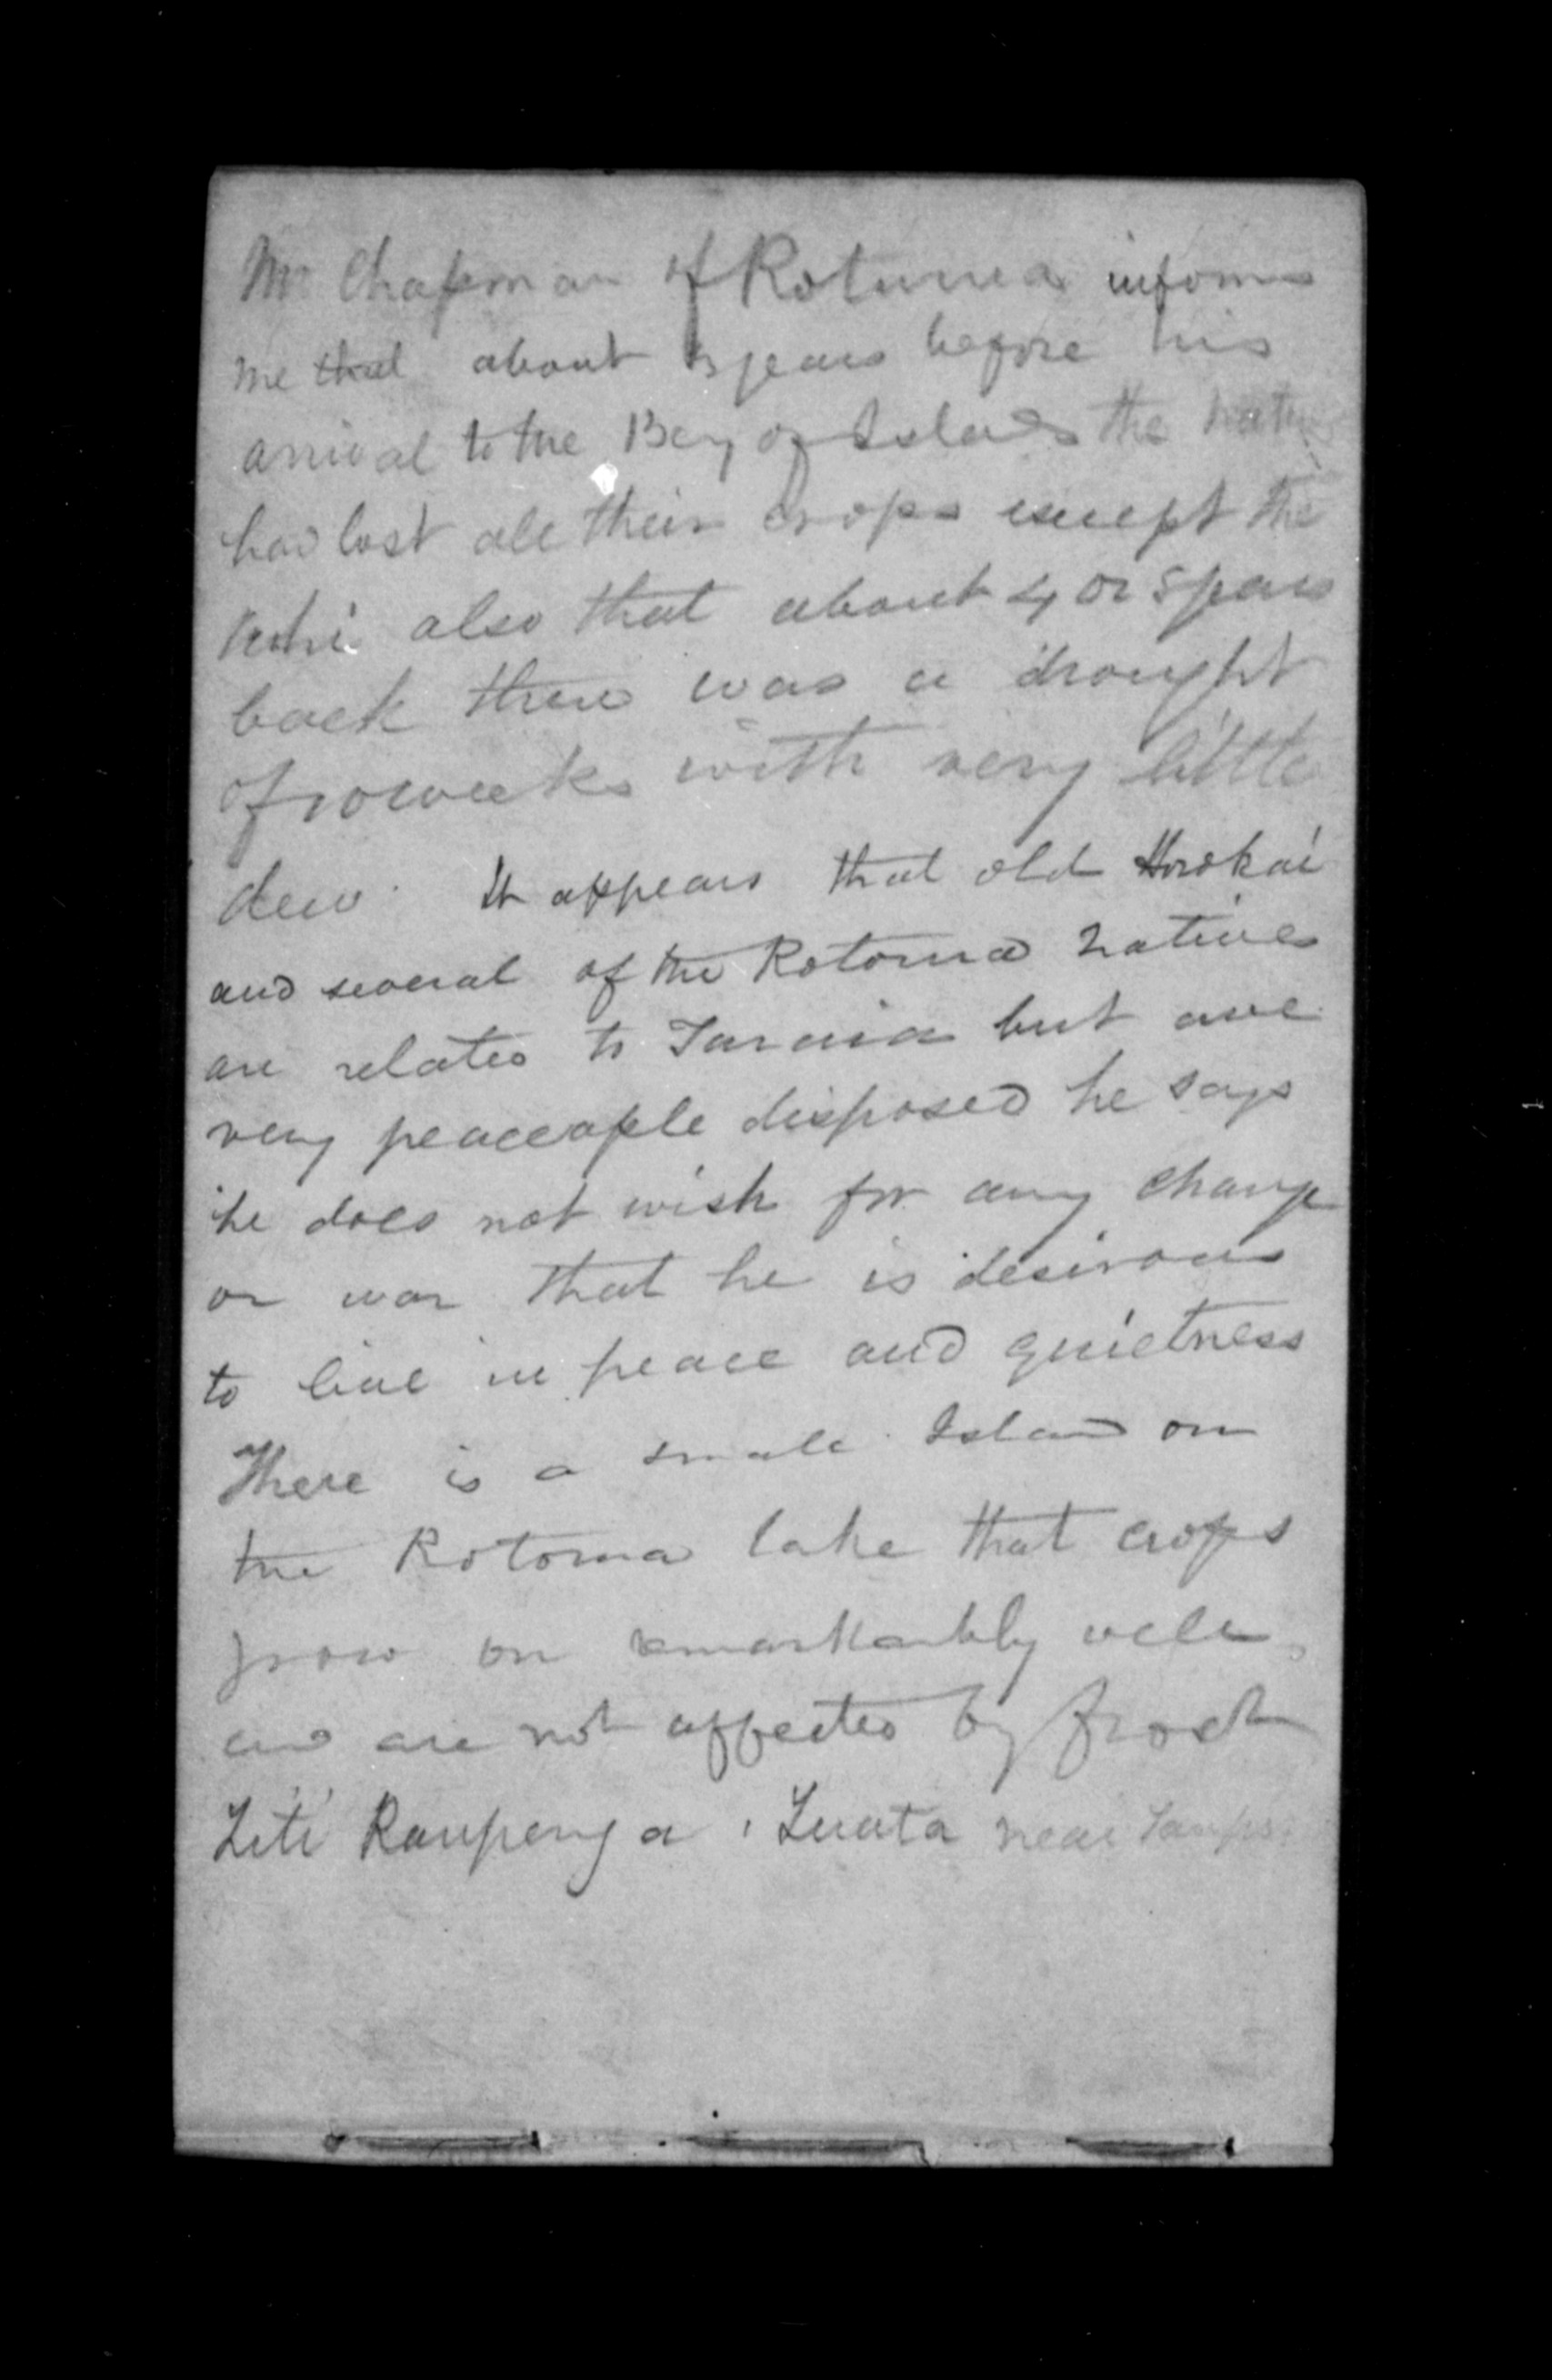 Mr Chapman of Rotuma informs
me that about 3 years before his
arrival to the Bay of Islands the Natives
had lost all their crops except the
also that about 4 or 5 years
back there was a drought
of 10 weeks with very little
dew. It appears that old Horokai
and several of the Rotoma natives
are related to Taraia but are
very peaceaple disposed he says
he does not wish for any change
or war that he is desirous
to live in peace and quietness
There is a small Island on
the Rotoma lake that crops
grow on remarkably well
and are not affected by frost
Titi Raupenga near Taupo